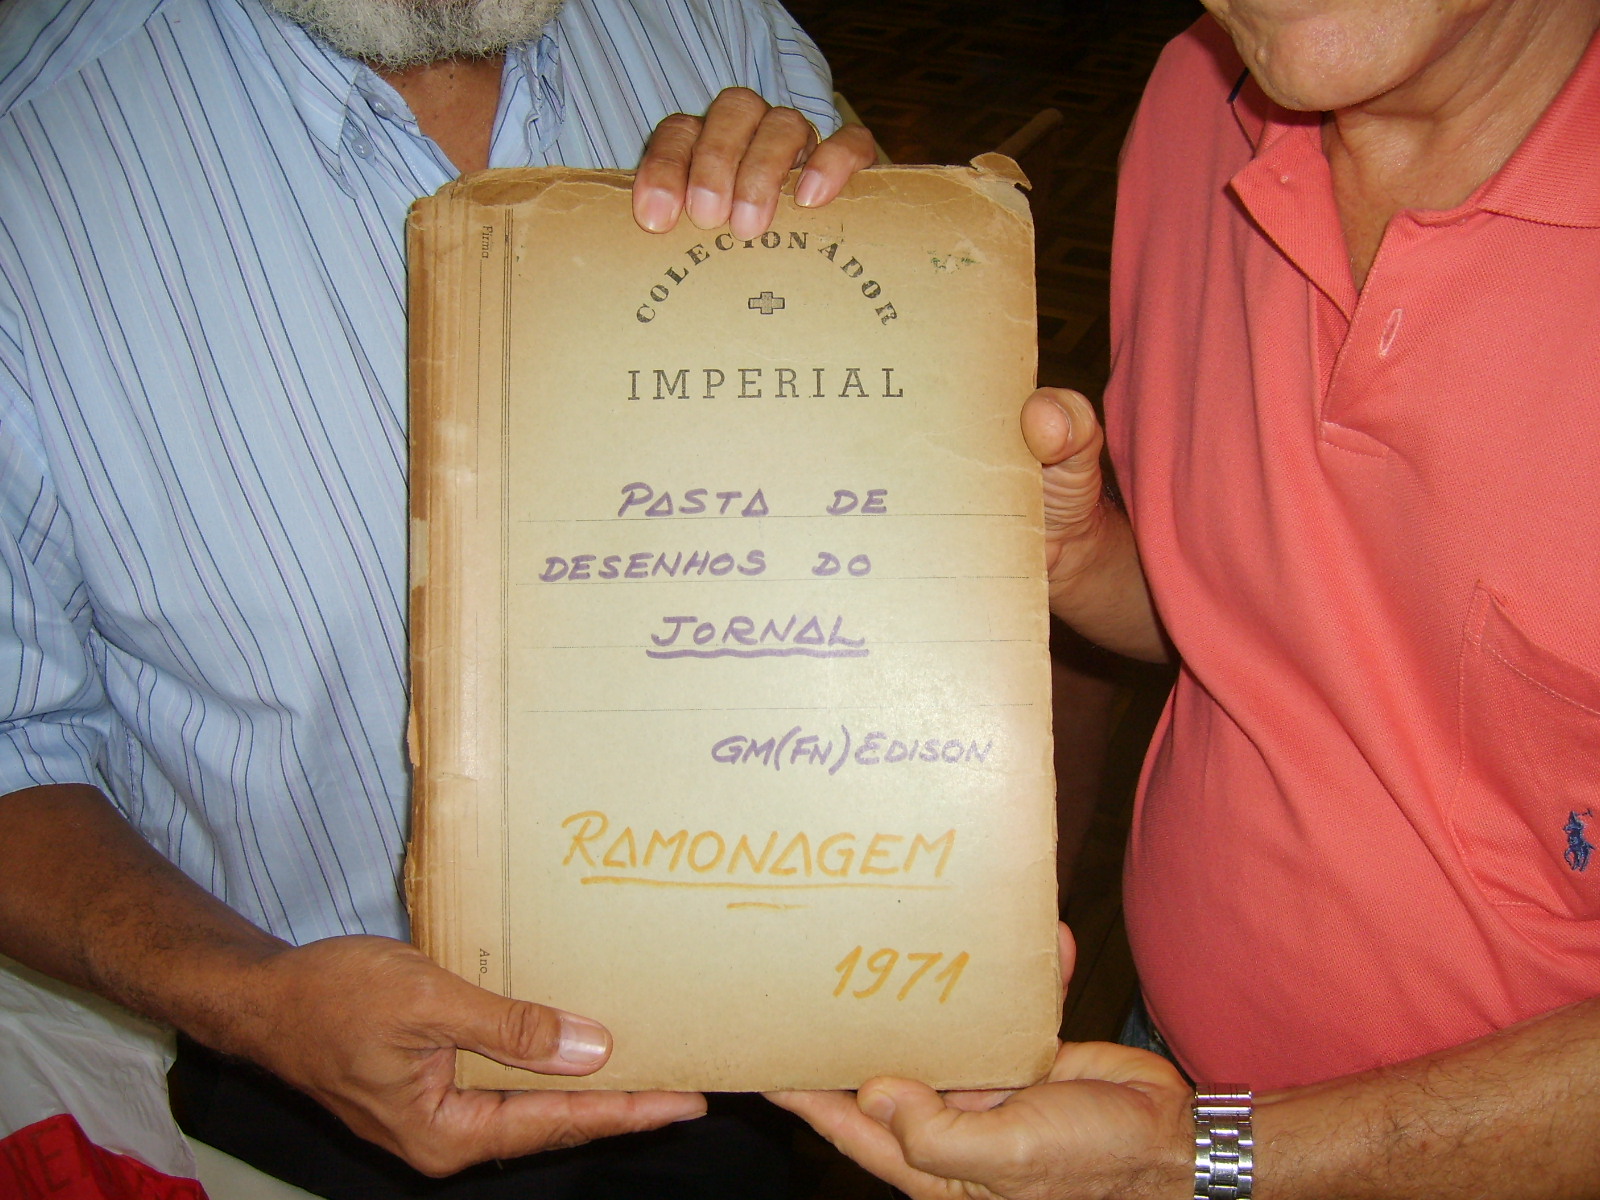 COLECIONADOR
IMPERIAL
Firma
PASTA DE
DESENHOS DO
JORNAL
GM(FN) EDISON
RAMONAGEM
1971
Ano